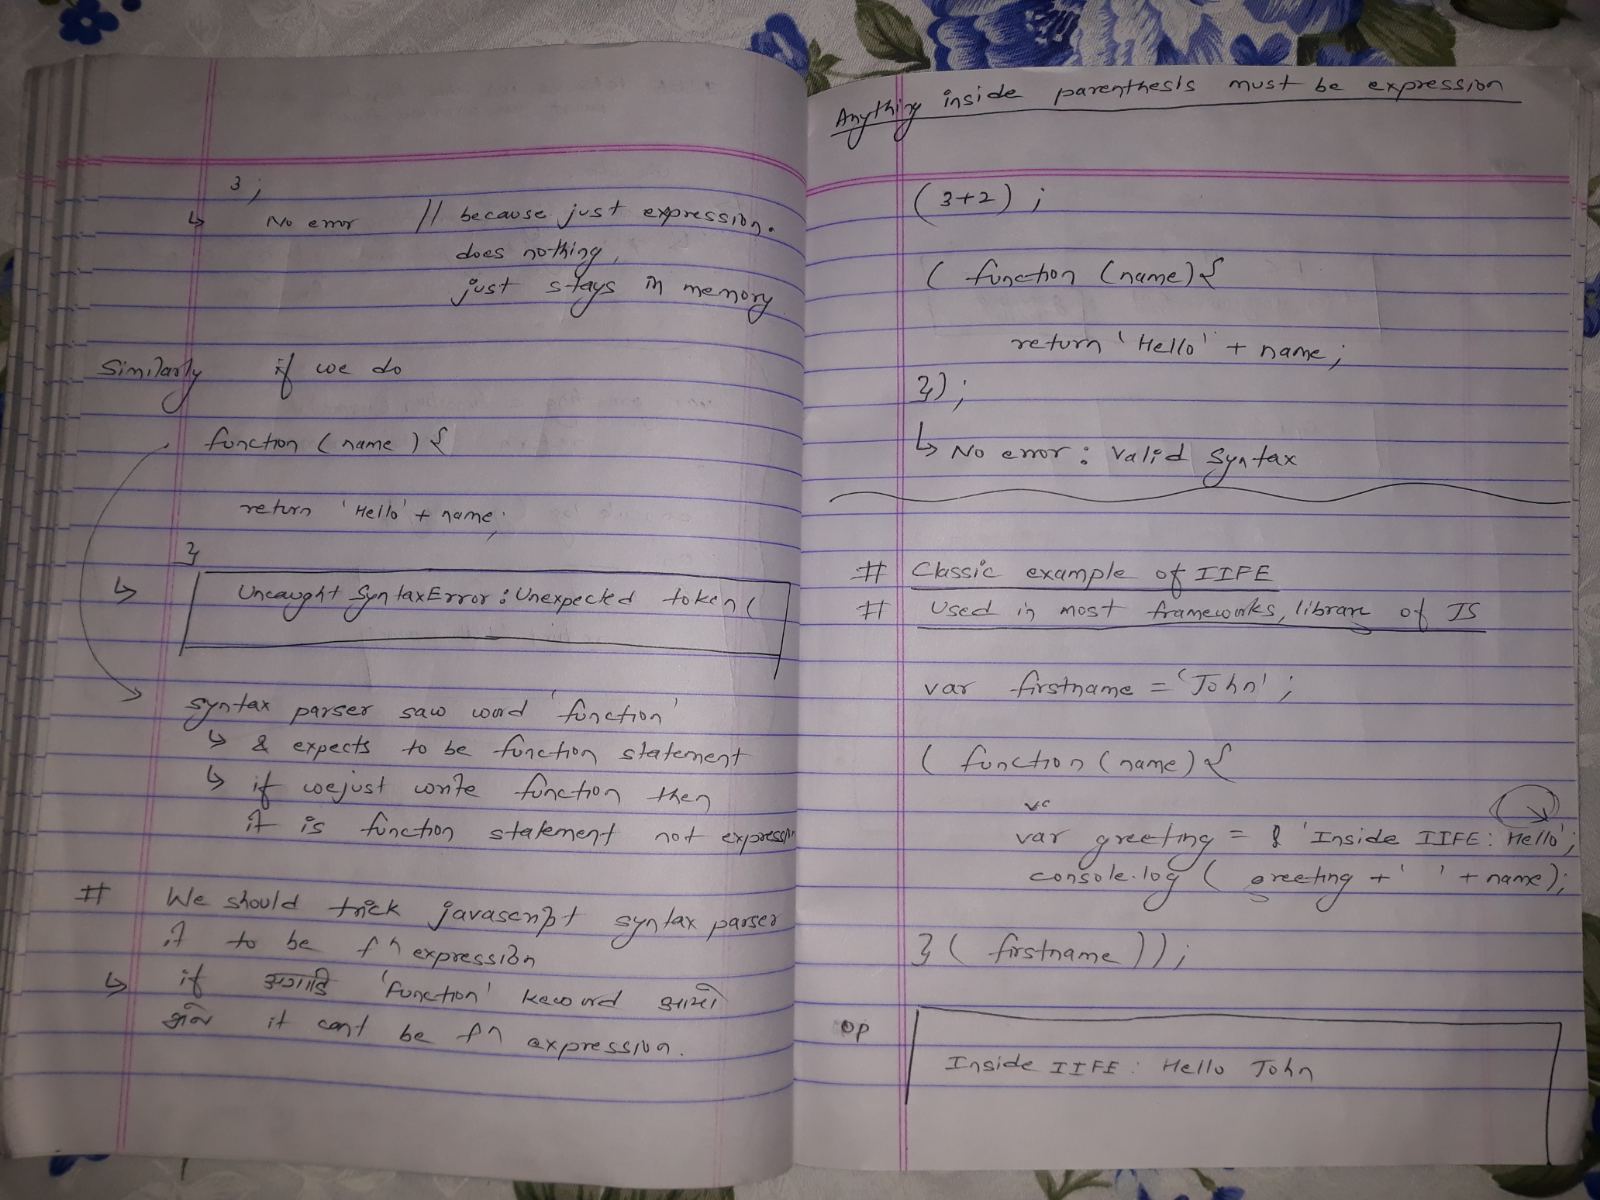 3 ;
↳ No error // because just expression.
does nothing,
just stays in memory
Similarly if we do
function ( name ) {
return 'Hello' + name;
}
↳ Uncaught SyntaxError : Unexpected token (
syntax parser saw word 'function'
↳ & expects to be function statement
↳ if we just write function then
it is function statement not expression
# We should trick javascript syntax parser
it to be fn expression
↳ if अगाडि 'function' keword आयो
भने it cant be fn expression.
Anything inside parenthesis must be expression
(3+2) ;
( function (name) {
return 'Hello' + name;
});
↳ No error : Valid syntax
# Classic example of IIFE
# Used in most frameworks, library of JS
var firstname = 'John' ;
( function (name) {
va
var greeting = 'Inside IIFE : Hello';
console.log ( greeting + ' ' + name);
} ( firstname ) ) ;
op
Inside IIFE : Hello John